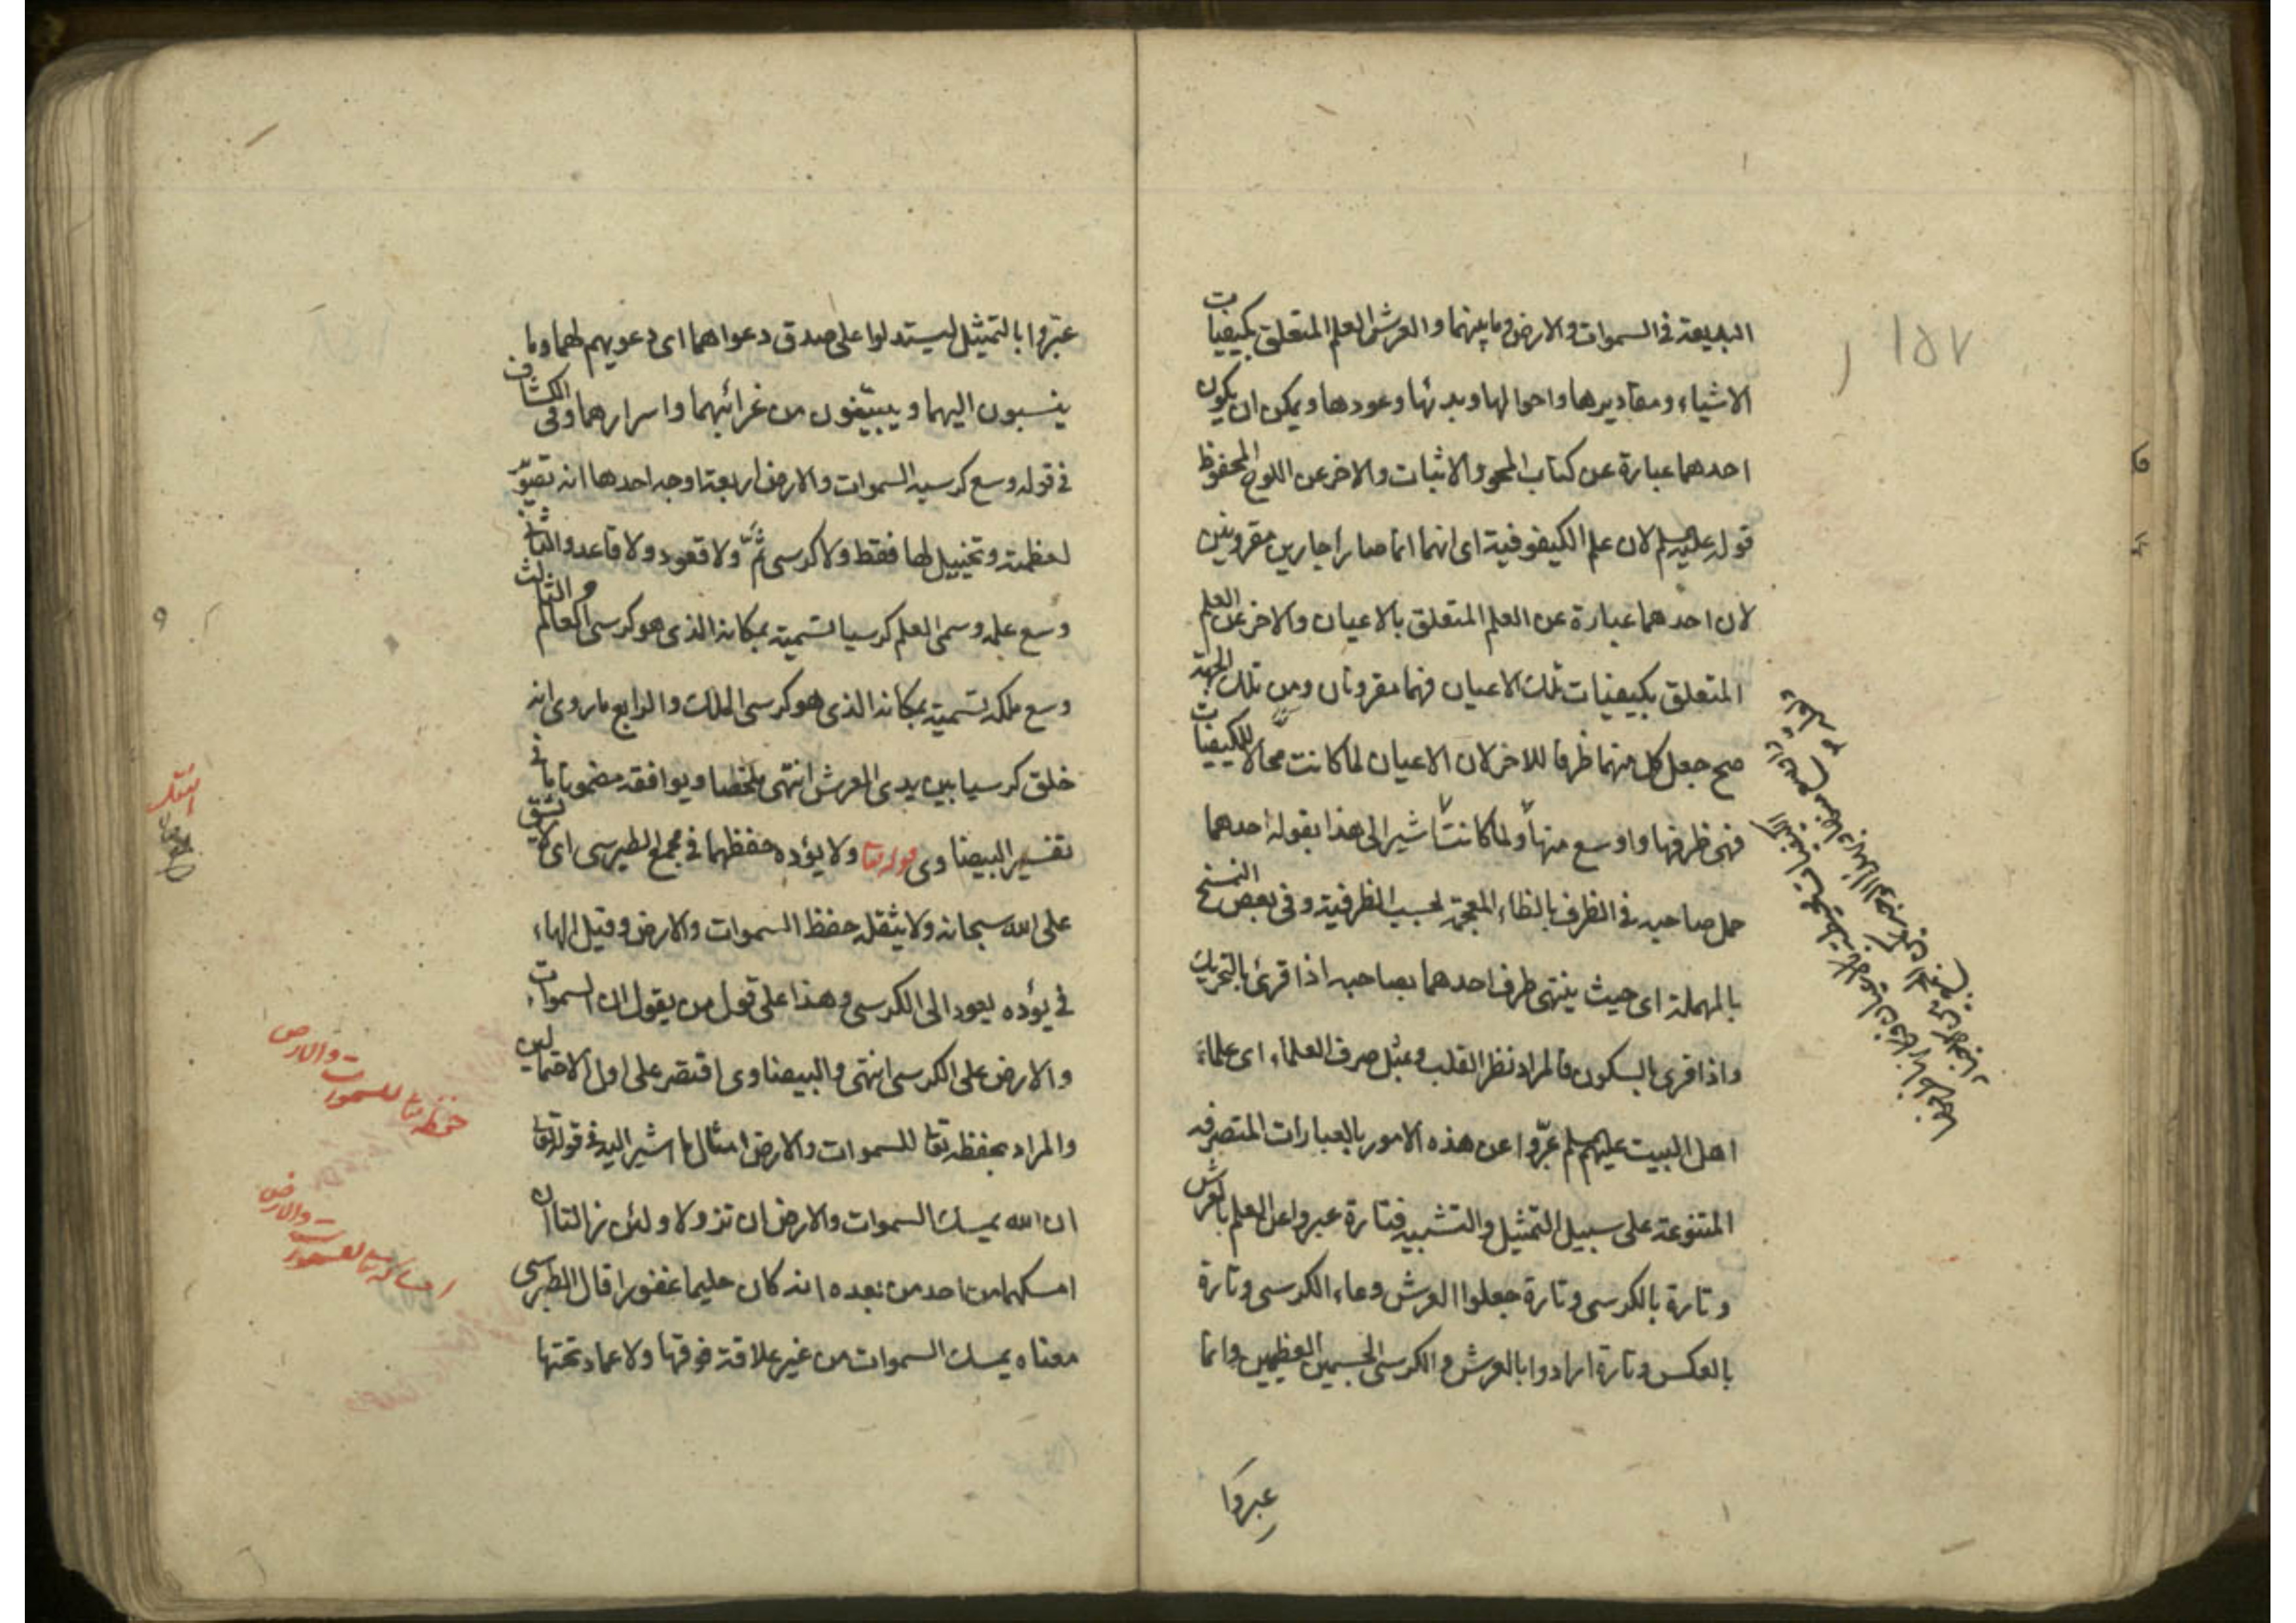 ١٥٧
البديعة في السموات والارض وما بينهما والعرش العلم المتعلق بكيفيات
الاشياء ومقاديرها واحوالها وبدئها وعودها ويمكن ان يكون
احدهما عبارة عن كتاب المحو والاثبات والاخر عن اللوح المحفوظ
قوله عليهم لان علم الكيفوفية اى انهما انما صارا جارين مقرونين
لان احدهما عبارة عن العلم المتعلق بالاعيان والاخر عن العلم
المتعلق بكيفيات تلك الاعيان فهما مقرونان ومن تلك الجهة
صح جعل كل منهما ظرفا للاخر لان الاعيان لما كانت محالا للكيفيات
فهى ظرفها واوسع منها ولما كانت اشير الى هذا بقوله احدهما
حمل صاحبه في الظرف بالظاء المعجمة بحسب الظرفية وفى بعض النسخ
بالمهملة اى حيث ينتهى طرف احدهما بصاحبه اذا قرئ بالتحريك
واذا قرى بالسكون فالمراد نظر القلب وبمثل صرف العلماء اى علماء
اهل البيت عليهم عبّروا عن هذه الامور بالعبارات المتصرفه
المتنوعة على سبيل التمثيل والتشبيه فتارة عبروا عن العلم بالعرش
وتارة بالكرسى وتارة جعلوا العرش وعاء الكرسى وتارة
بالعكس وتارة ارادوا بالعرش والكرسى الجسمين العظيمين وانما
عبروا
عبّروا بالتمثيل ليستدلوا على صدق دعواهما اى دعويهم لهما وما
ينسبون اليهما ويبيّنون من غرائبهما واسرارهما وفى الكشاف
في قوله وسع كرسيه السموات والارض اربعة اوجه احدها انه تصوير
لعظمته وتخييل لها فقط ولا كرسى ثمّ ولا قعود ولا قاعد والثانى
وسع علمه وسمى العلم كرسيا تسمية بمكانه الذى هو كرسى العالم والثالث
وسع ملكه تسمية بمكانه الذى هو كرسى الملك والرابع ما روى انه
خلق كرسيا بين يدى العرش انتهى ملخصا ويوافقه مضمونا ما في
تفسير البيضاوى قوله تعا ولا يؤده حفظهما في مجمع الطبرسى اى لا يشق
على الله سبحانه ولا يثقله حفظ السموات والارض وقيل الهاء
في يؤده يعود الى الكرسى وهذا على قول من يقول ان السموات
والارض على الكرسى انتهى والبيضاوى اقتصر على اول الاحتمالين
والمراد بحفظه تعا للسموات والارض امثال ما اشير اليه في قوله تعا
ان الله يمسك السموات والارض ان تزولا ولئن زالتا ان
امسكهما من احد من بعده انه كان حليما غفورا قال الطبرسى
معناه يمسك السموات من غير علاقة فوقها ولا عماد تحتها
حفظه تعا للسموات والارض
امساكه تعا للسموات والارض